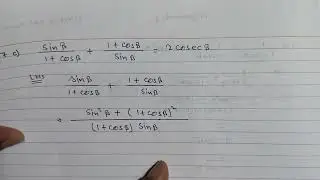 7 c) sinβ/(1+cosβ) + (1+cosβ)/sinβ = 2 cosecβ
LHS sinβ/(1+cosβ) + (1+cosβ)/sinβ
= (sin²β + (1+cosβ)²)/((1+cosβ) sinβ)